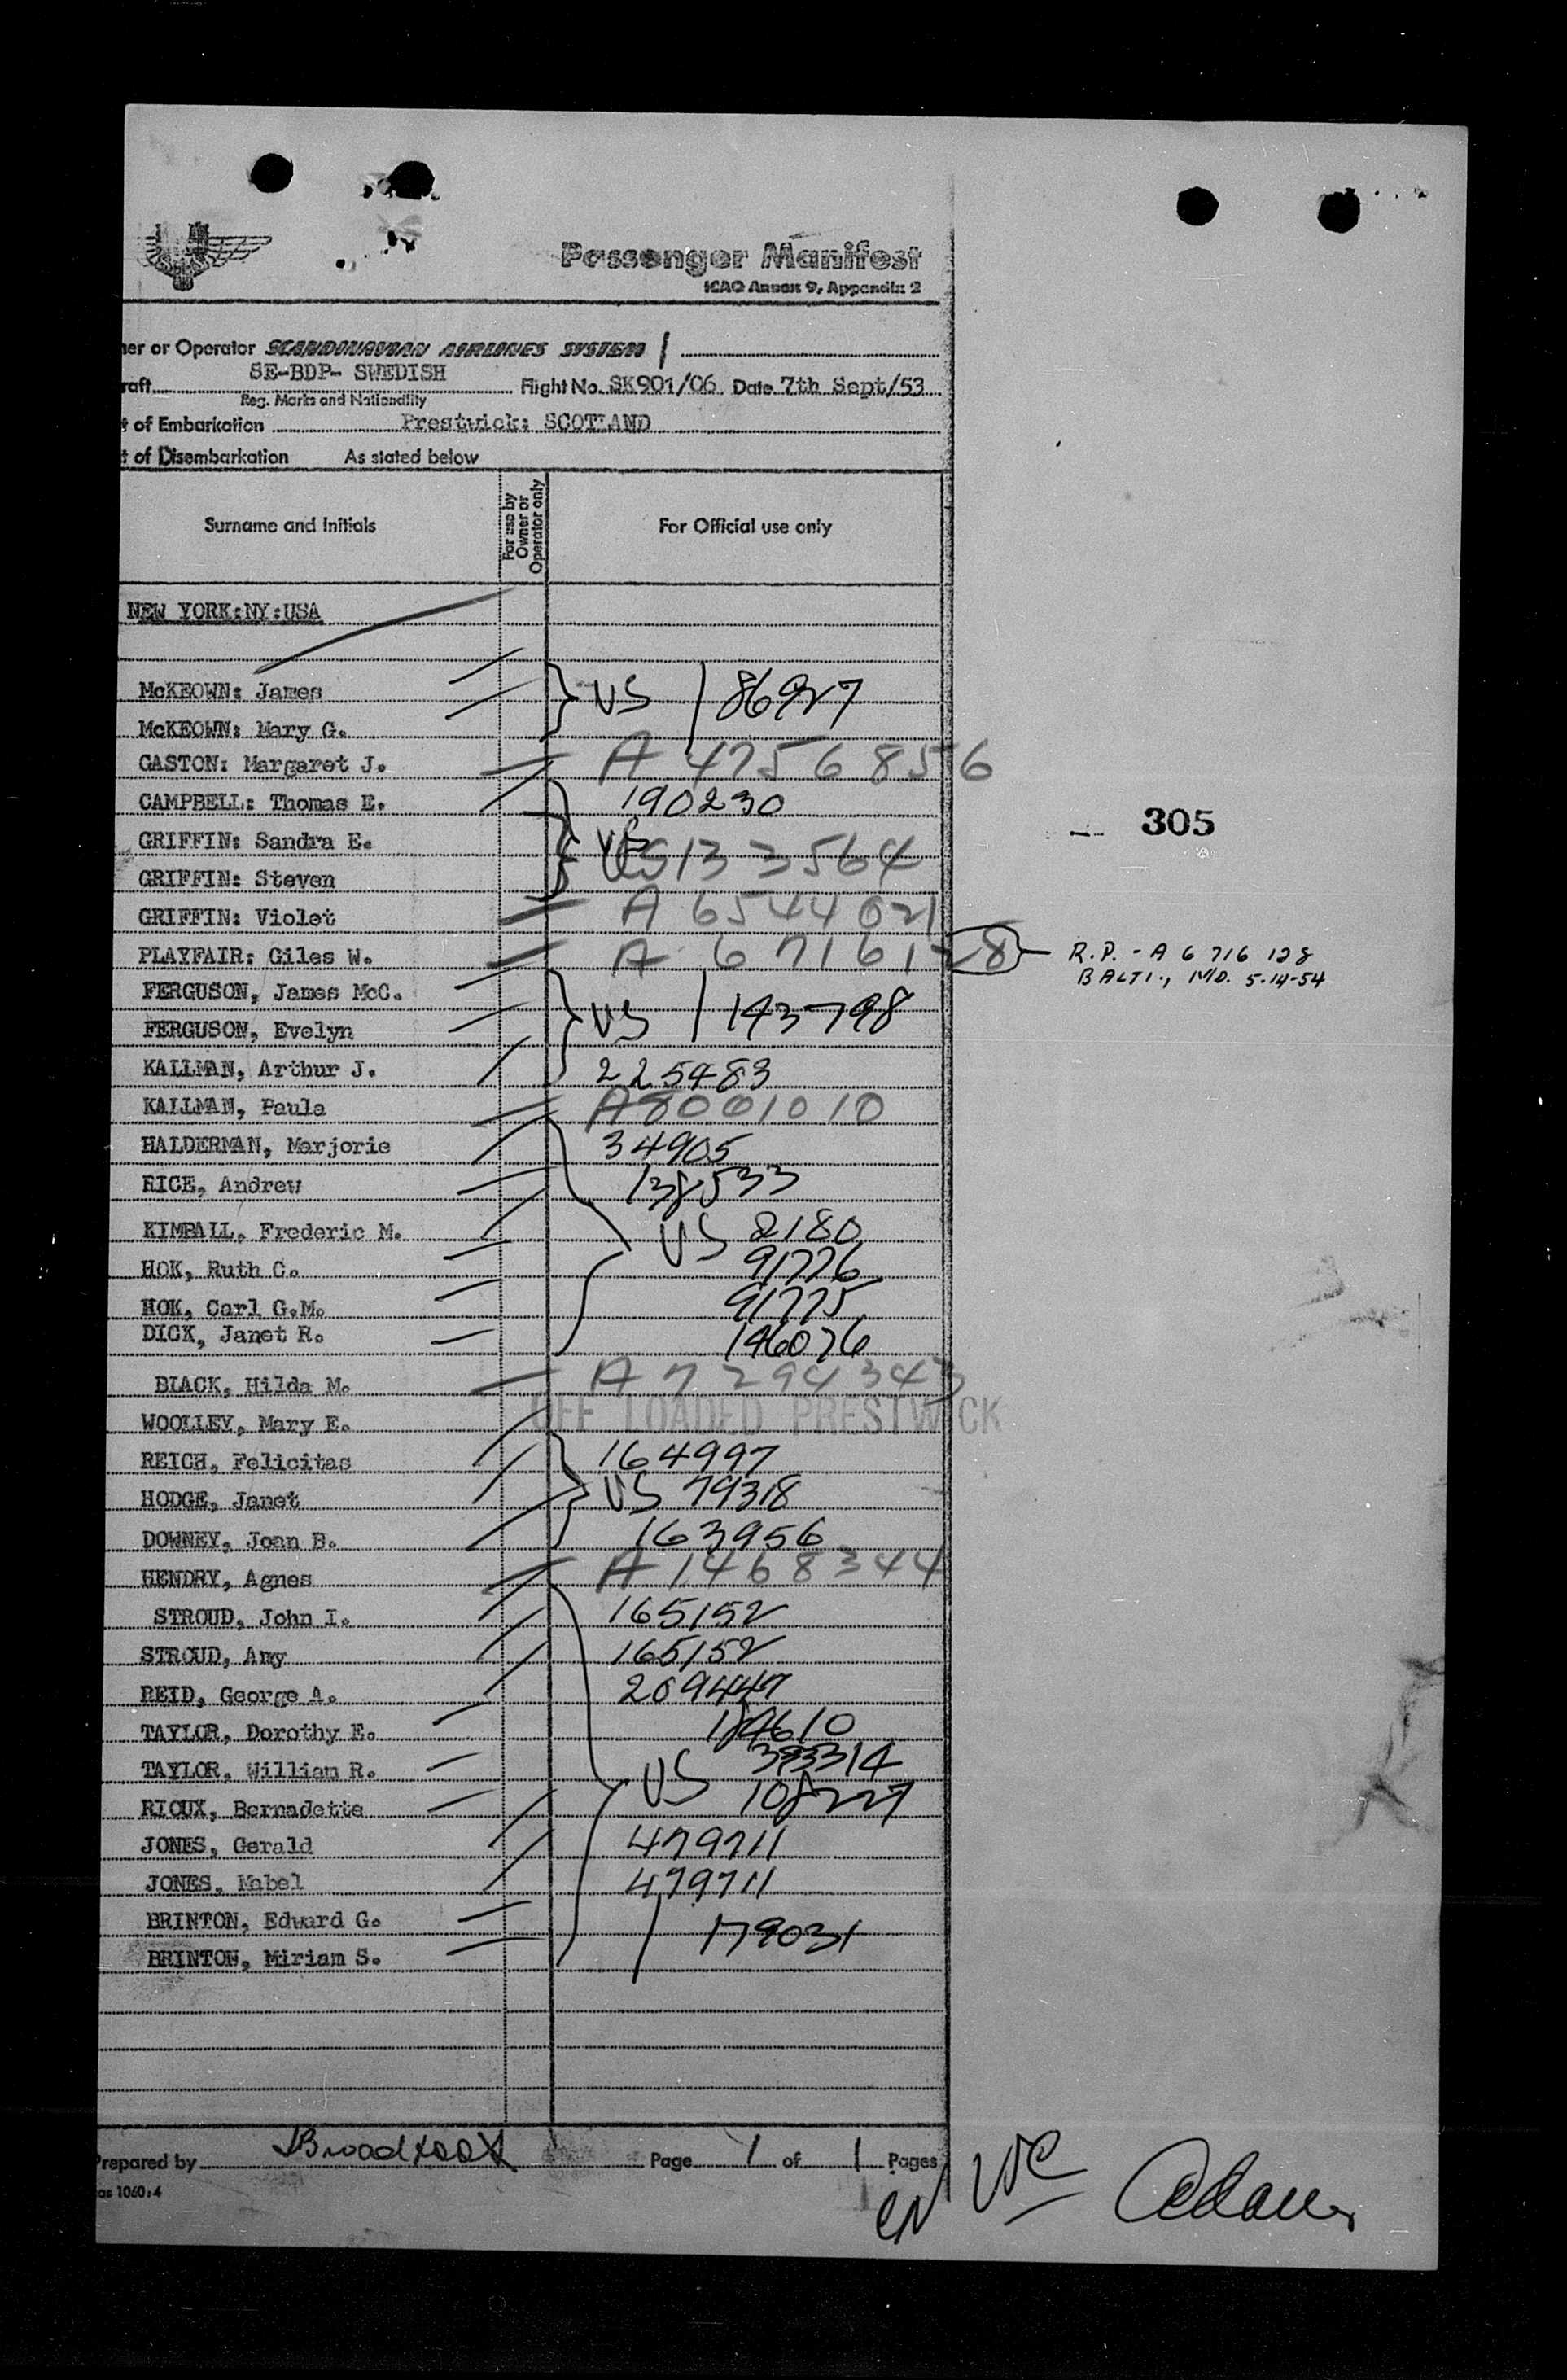 Passenger Manifest
ICAO Annex 9, Appendix 2
ner or Operator SCANDINAVIAN AIRLINES SYSTEM
raft SE-BDP- SWEDISH Flight No. SK901/06 Date 7th Sept/53
Reg. Marks and Nationality
t of Embarkation Prestwick: SCOTLAND
t of Disembarkation As stated below
Surname and Initials For use by Owner or Operator only For Official use only
NEW YORK:NY:USA
McKEOWN: James US 86927
McKEOWN: Mary G.
GASTON: Margaret J. A 4756856
CAMPBELL: Thomas E. 190230
GRIFFIN: Sandra E. US 133564
GRIFFIN: Steven
GRIFFIN: Violet A 6544021
PLAYFAIR: Giles W. A 6716128 R.P. - A 6 716 128
BALTI., MD. 5-14-54
FERGUSON, James McC. US 143798
FERGUSON, Evelyn
KALLMAN, Arthur J. 225483
KALLMAN, Paula A8001010
HALDERMAN, Marjorie 34905
RICE, Andrew 138533
KIMBALL, Frederic M. US 2180
HOK, Ruth C. 91776
HOK, Carl G.M. 91775
DICK, Janet R. 196076
BLACK, Hilda M. A 7294343
WOOLLEY, Mary E. OFF LOADED PRESTWICK
REICH, Felicitas 164997
HODGE, Janet US 79318
DOWNEY, Joan B. 163956
HENDRY, Agnes A 1468344
STROUD, John I. 165152
STROUD, Amy 165152
REID, George A. 209447
TAYLOR, Dorothy E. 184610
TAYLOR, William R. US
RIOUX, Bernadette 108227
JONES, Gerald 479711
JONES, Mabel 479711
BRINTON, Edward G. 179031
BRINTON, Miriam S.
305
Prepared by Broadfoot Page 1 of 1 Pages
as 1060:4